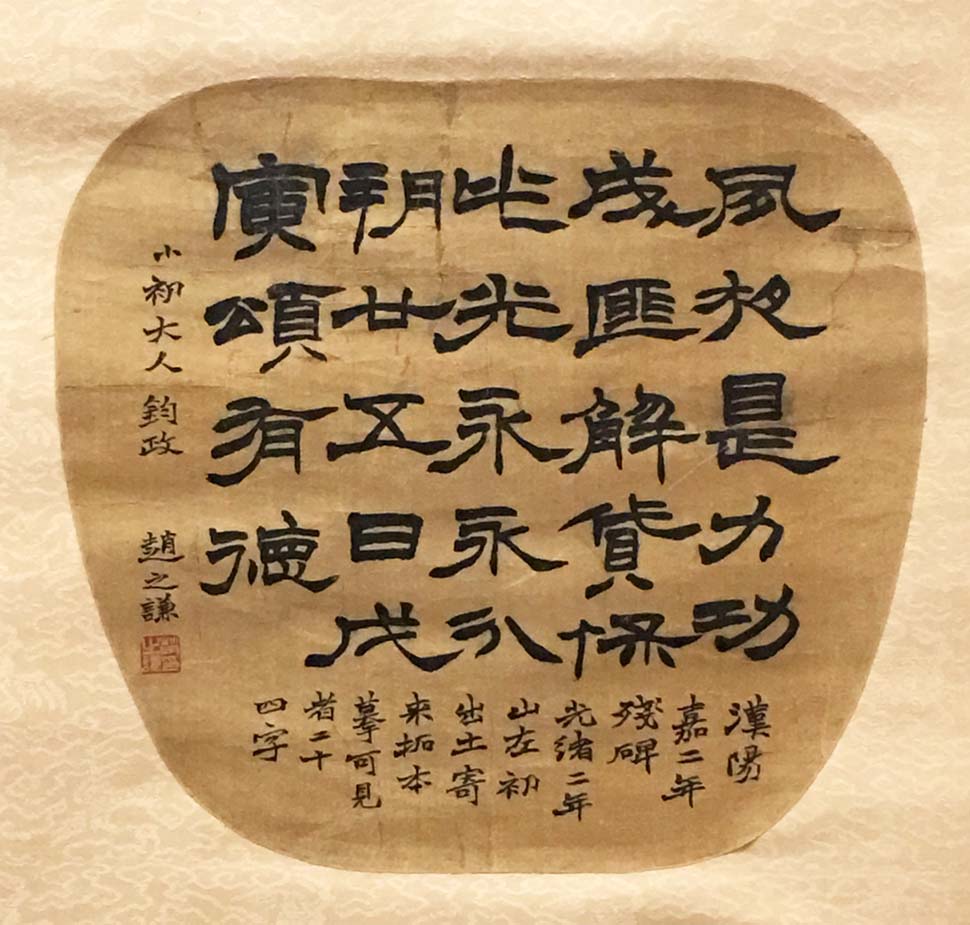 夙夜是力功
成匪解貨保
光永永
朔廿五日戊
寅頌有德
漢陽
嘉二年
殘碑
光緒二年
山左初
出土寄
来拓本
摹可見
者二十
四字
小初大人 鈞政 趙之謙